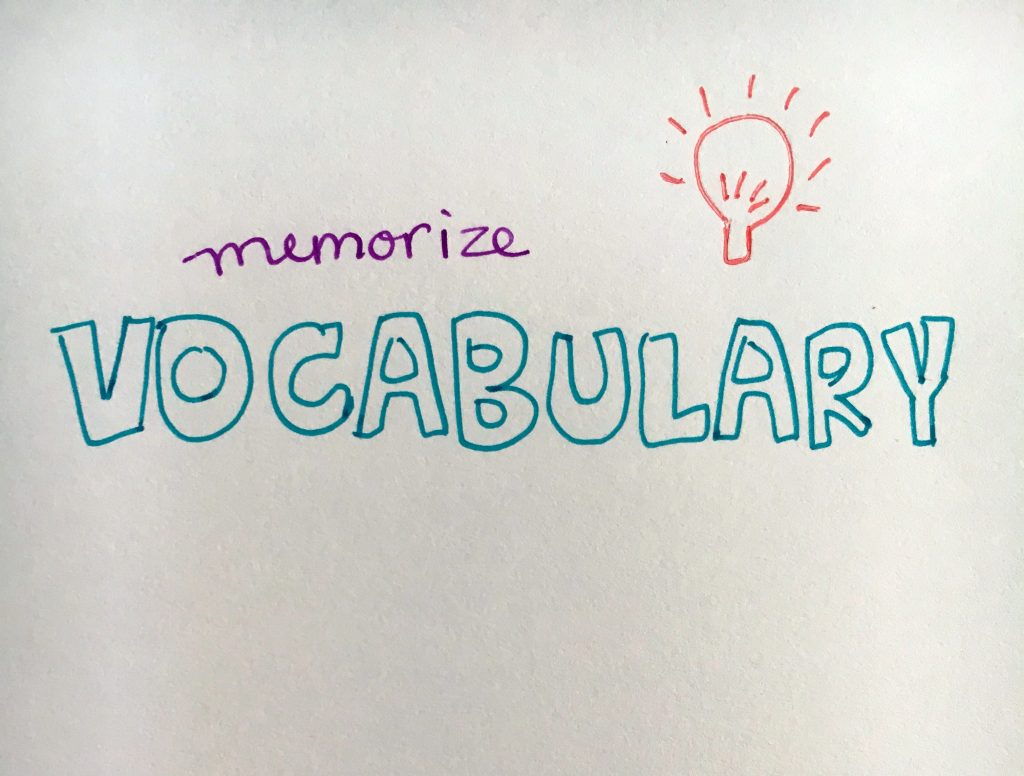 memorize
VOCABULARY